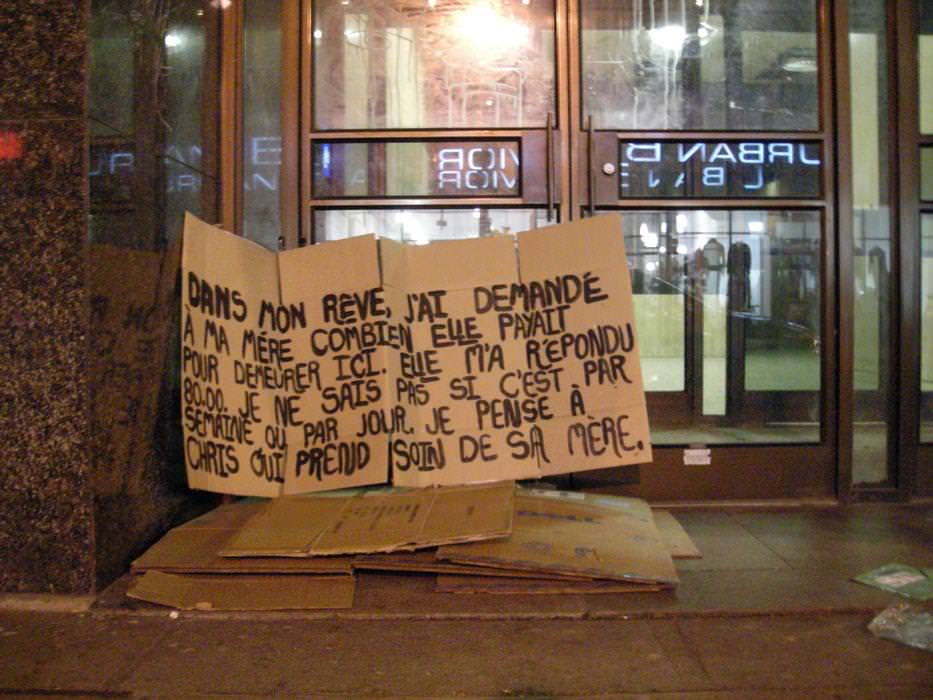 DANS MON RÊVE, J'AI DEMANDÉ
À MA MÉRE COMBIEN ELLE PAYAIT
POUR DEMEURER ICI. ELLE M'A RÉPONDU
80.00. JE NE SAIS PAS SI C'EST PAR
SEMAINE OU PAR JOUR. JE PENSE À
CHRIS QUI PREND SOIN DE SA MÈRE.
URBAN B
VIOR
VIOR